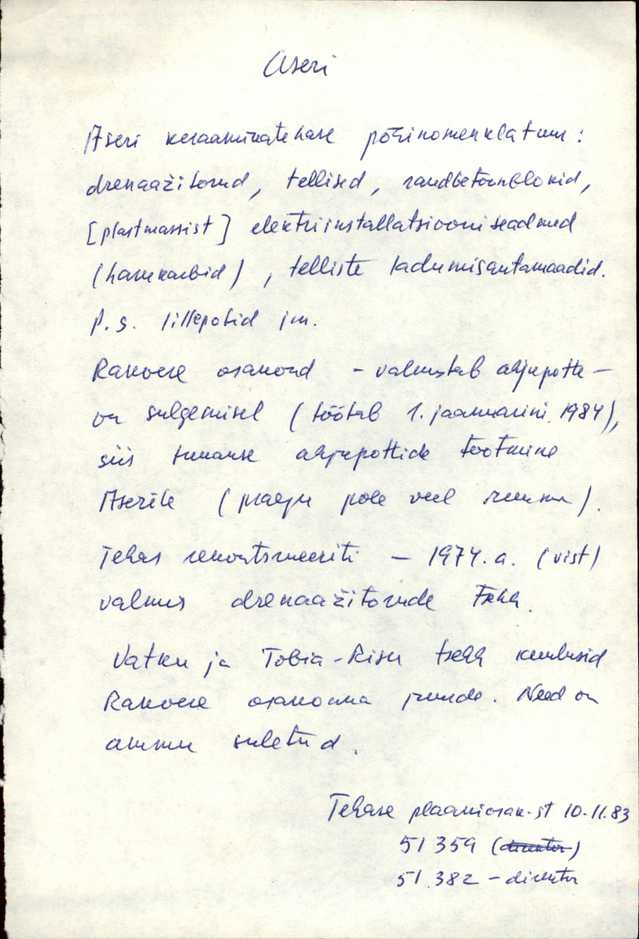 Aseri
Aseri keraamikatehase põhinomenklatuur:
drenaažitorud, tellised, raudbetoonblokid,
[plastmassist] elektriinstallatsiooniseadmed
(harukarbid), telliste ladumisautomaadid.
P.S. lillepotid jm.
Rakvere osakond - valmistab ahjupotte -
on sulgemisel (töötab 1. jaanuarini 1984),
siis tuuakse ahjupottide tootmine
Aserile (praegu pole veel ruumi).
Tehas rekonstrueeriti - 1974.a. (vist)
valmis drenaažitorude tsehh.
Vatku ja Tobia-Risu tsehh kuulusid
Rakvere osakonna juurde. Need on
ammu suletud.
Tehase plaaniosak.st 10.11.83
51 359 (direktor)
51.382 - direktor